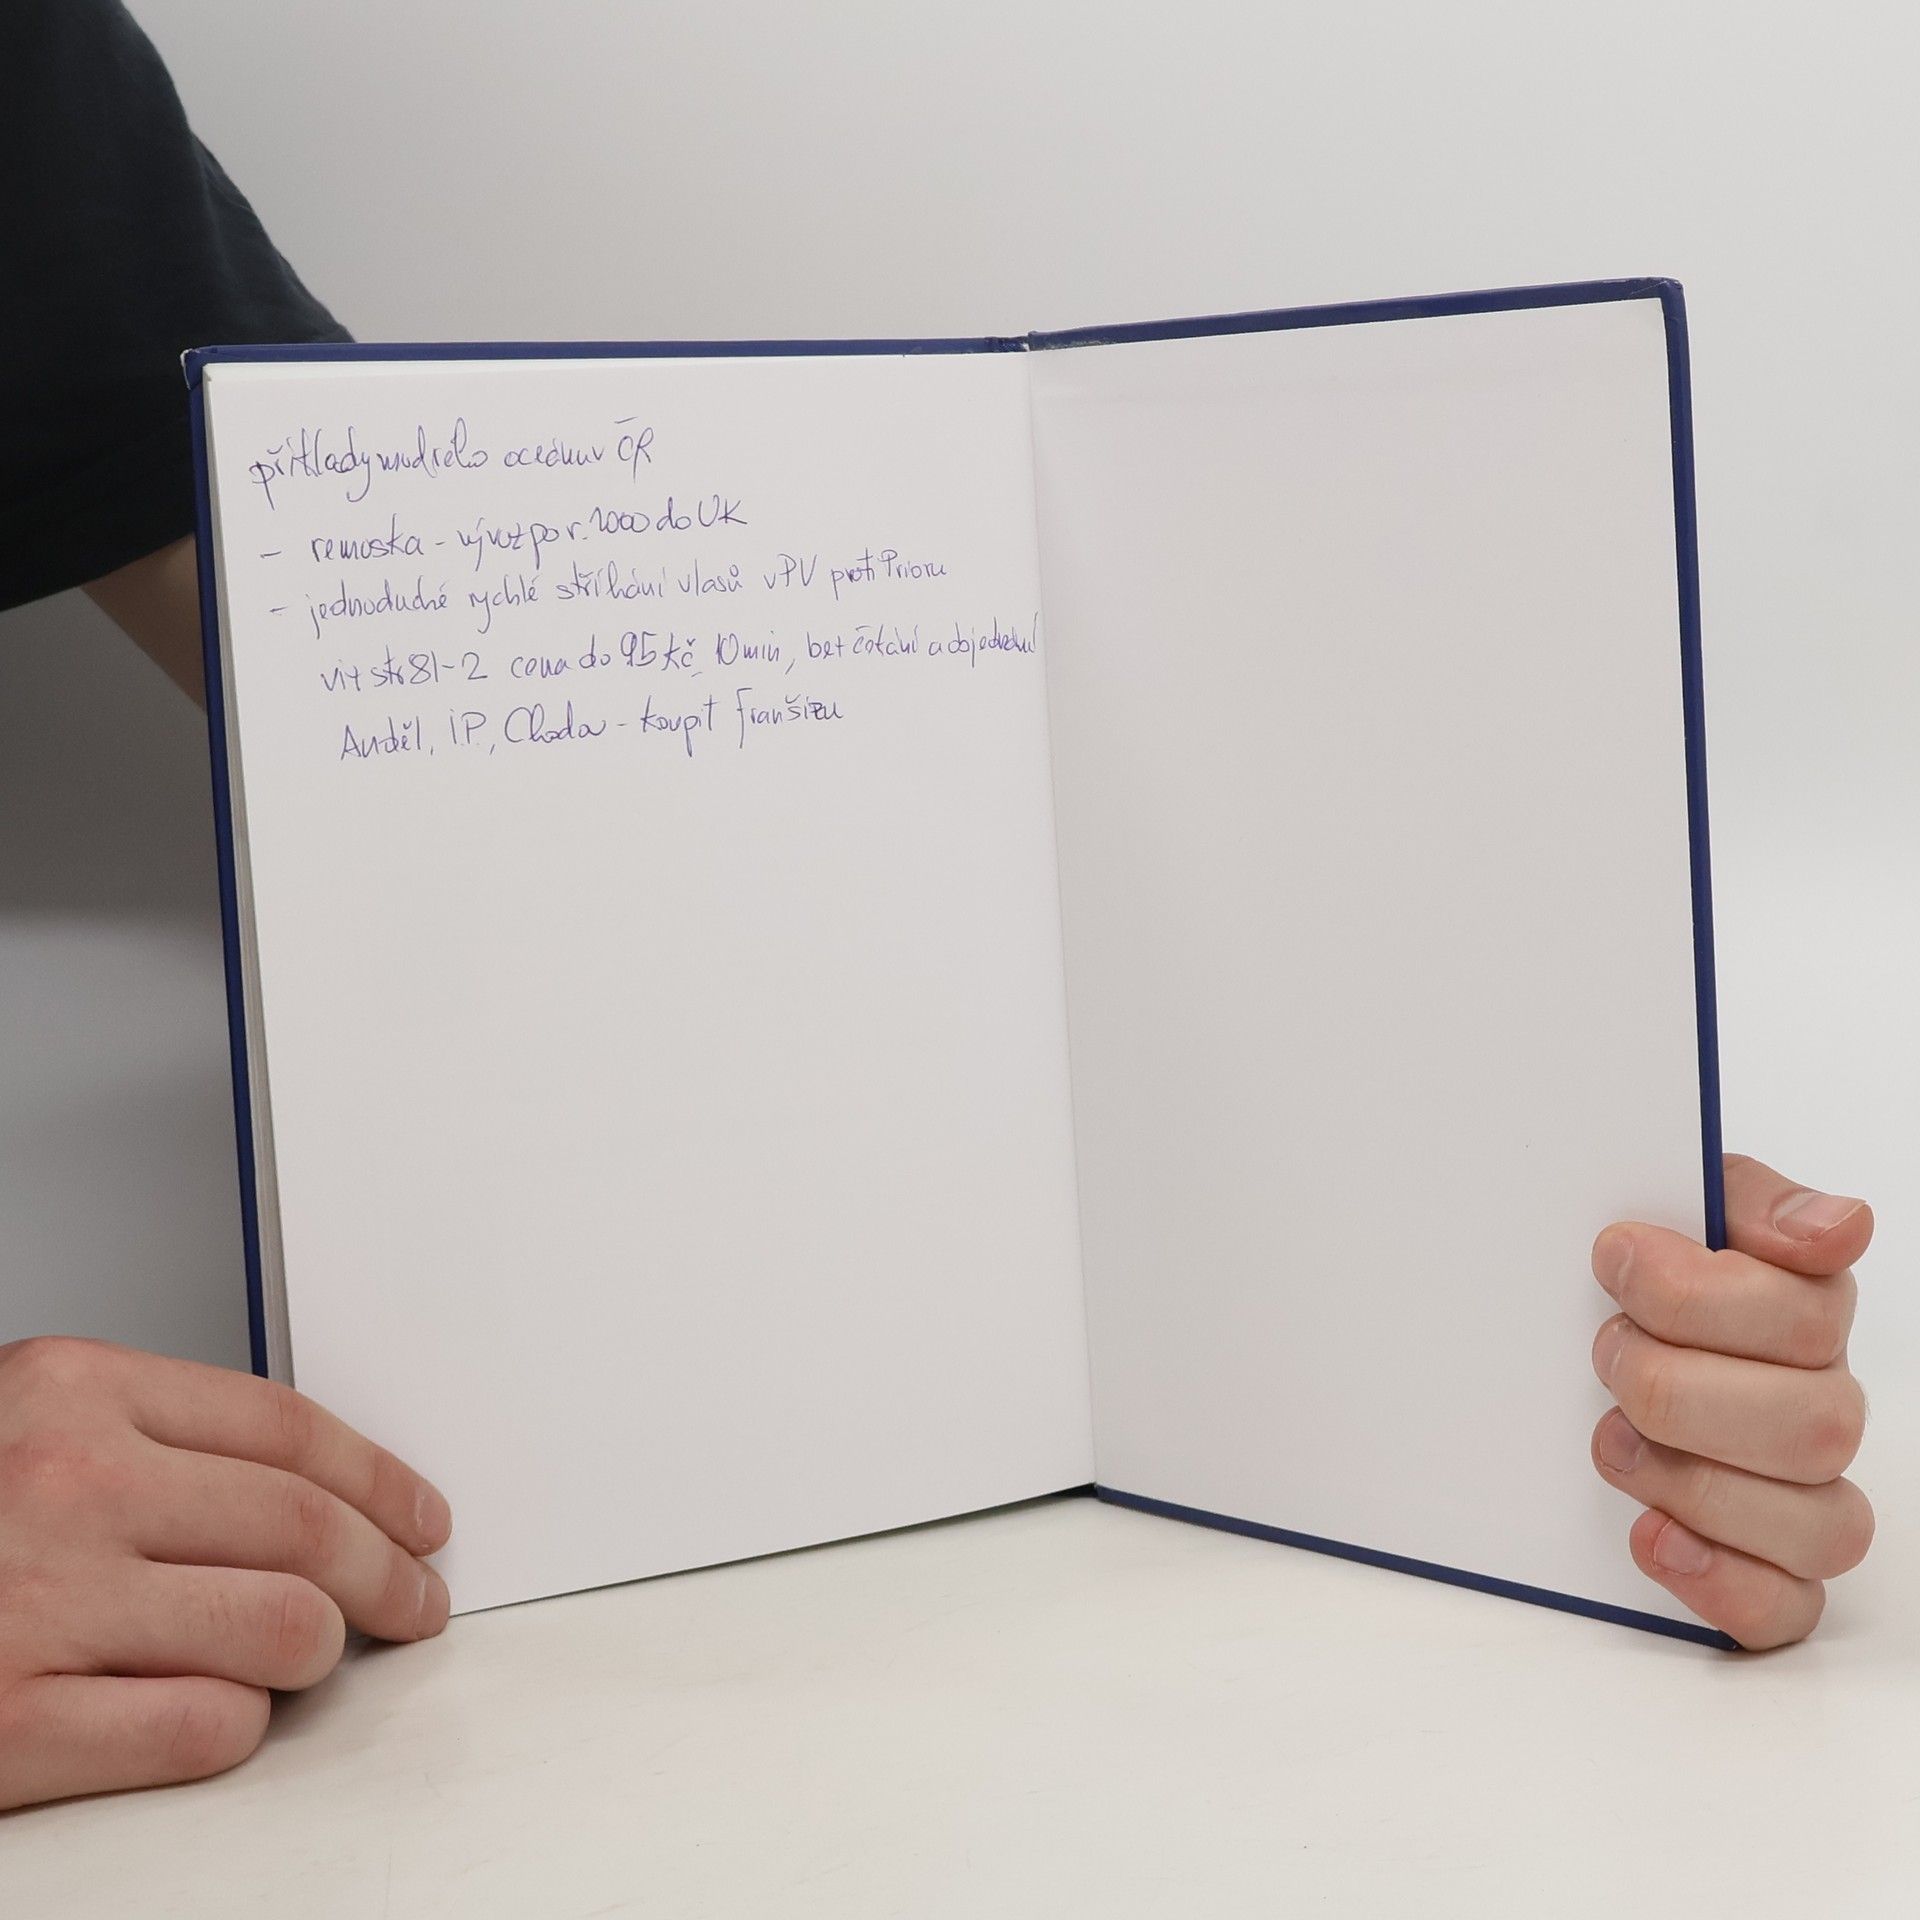 příklady modrého oceánu v ČR
- remoska - vývoz po r. 2000 do UK
- jednoduché rychlé stříhání vlasů v PV proti Prioru
viz str 81-2 cena do 95 Kč 10 min, bez čekání a objednání
Anděl, I.P., Chodov - koupit franšízu